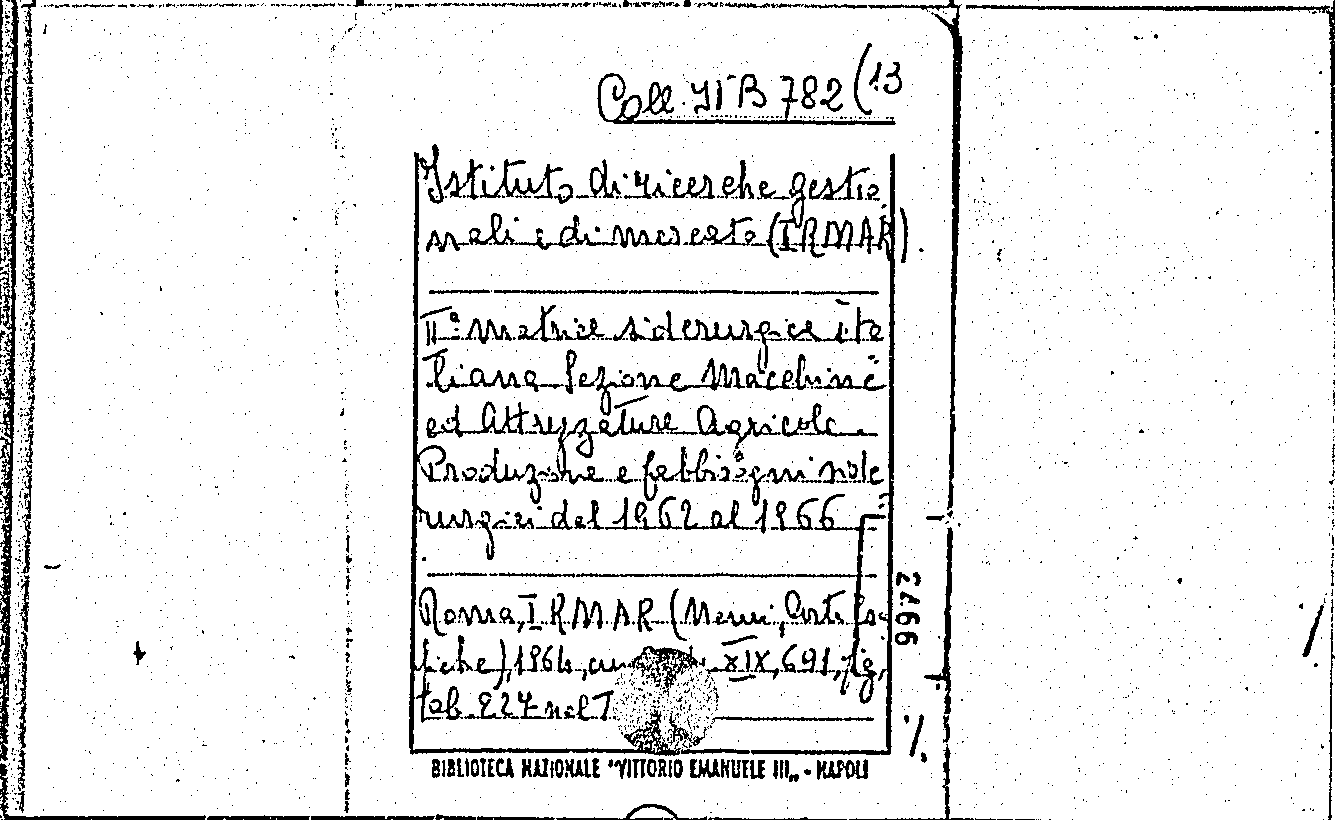 Coll. VI B 782 (13
Istituto di ricerche gestio
nali e di mercato (IRMAR).
IIª matrice siderurgica ita
liana Sezione Macchine
ed Attrezzature Agricole.
Produzione e fabbisogni side
rurgici dal 1962 al 1966
Roma, IRMAR (Nemi, Arte
fiche), 1964, XIX, 691, fig,
tab. 227 nel T
2166
BIBLIOTECA NAZIONALE "VITTORIO EMANUELE III„ - NAPOLI